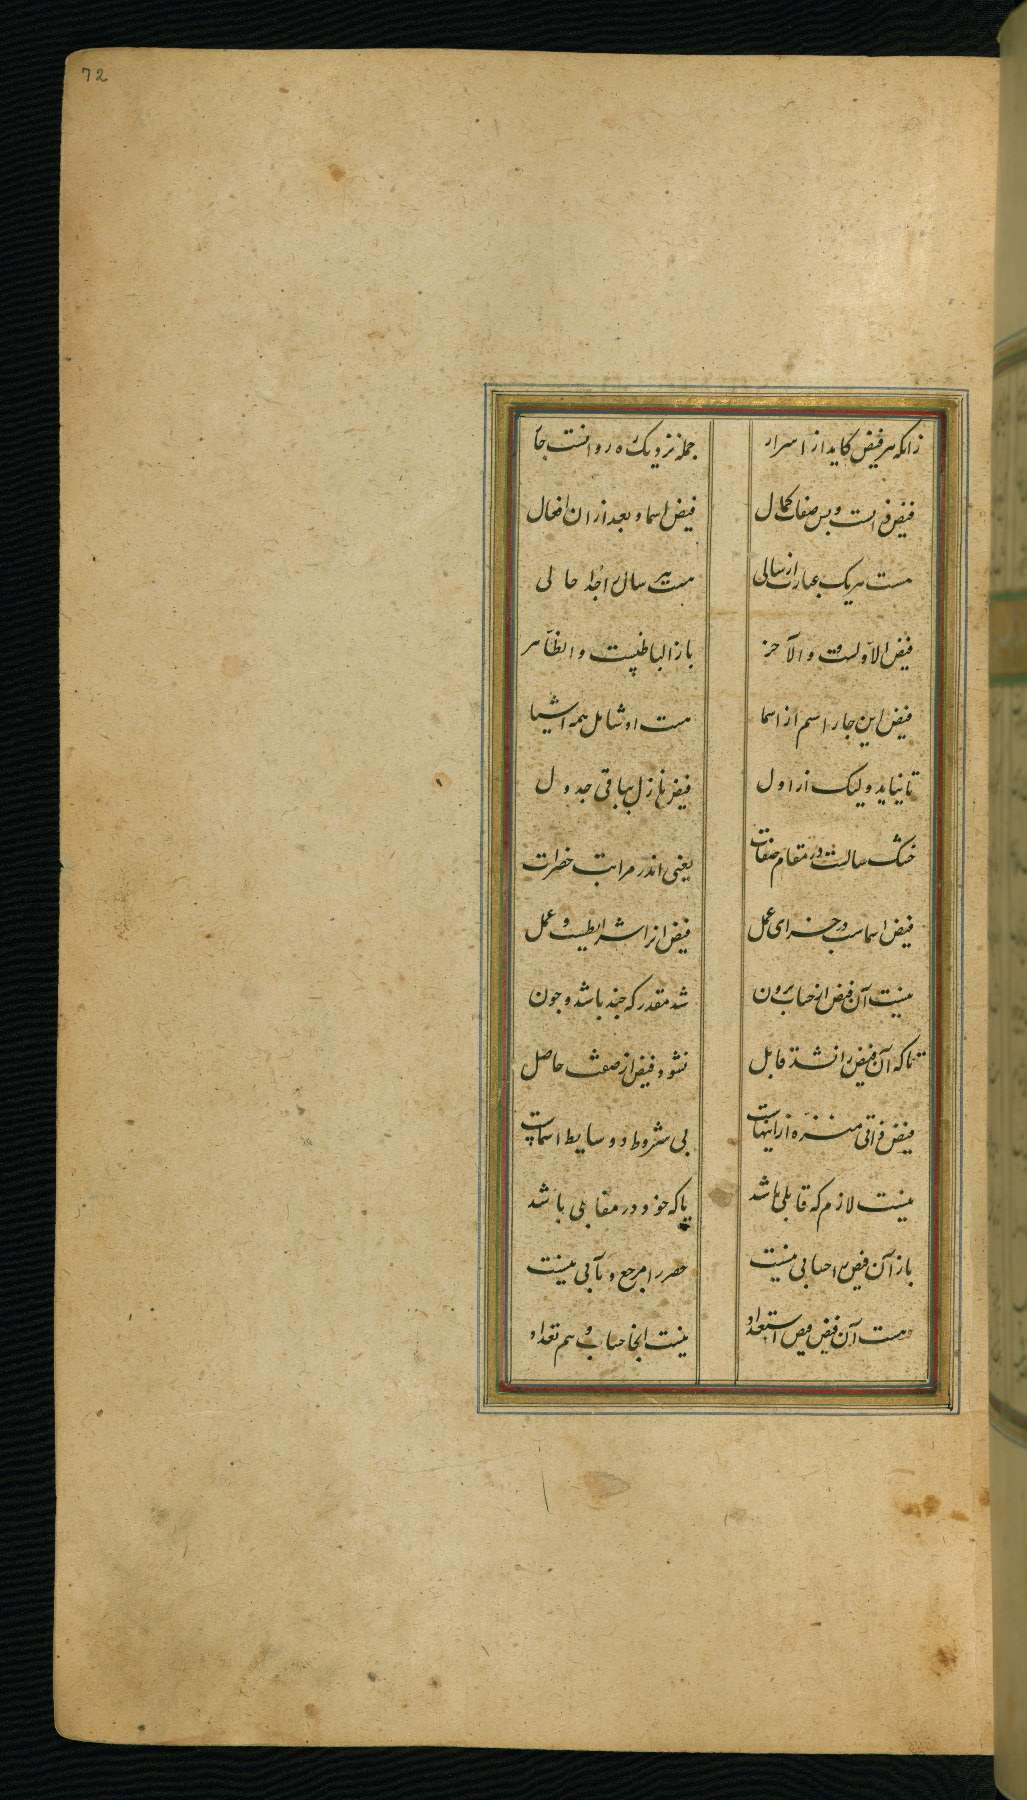 72
زانکه هر فیض کاید از اسرار
جمله نزدیک ره روانست چار
فیض ذاتست و پس صفات کمال
فیض اسما و بعد از ان افعال
هست هریک عبارت از سالی
هست هر سال را جدا حالی
فیض الاولست و الآخر
باز الباطنیست و الظاهر
فیض این چار اسم از اسما
هست او شامل همه اشیا
تا نیاید ولیک از اول
فیض نازل بباقی جدول
خشک سالست در مقام صفات
یعنی اندر مراتب حضرات
فیض اسماست در جزای عمل
فیض انرا شرایطیست و عمل
نیست آن فیض از حساب برون
شد مقدر که چند باشد و چون
تا که آن فیض را نشد قابل
نشود فیض از صفت حاصل
فیض ذاتی منزه از اینهاست
بی شروط و وسایط اسماست
نیست لازم که قابلی باشد
یا که خود در مقابلی باشد
باز آن فیض را حسابی نیست
حصر را مرجع و مآبی نیست
هست آن فیض فیض استعداد
نیست انجا حساب و هم تعداد